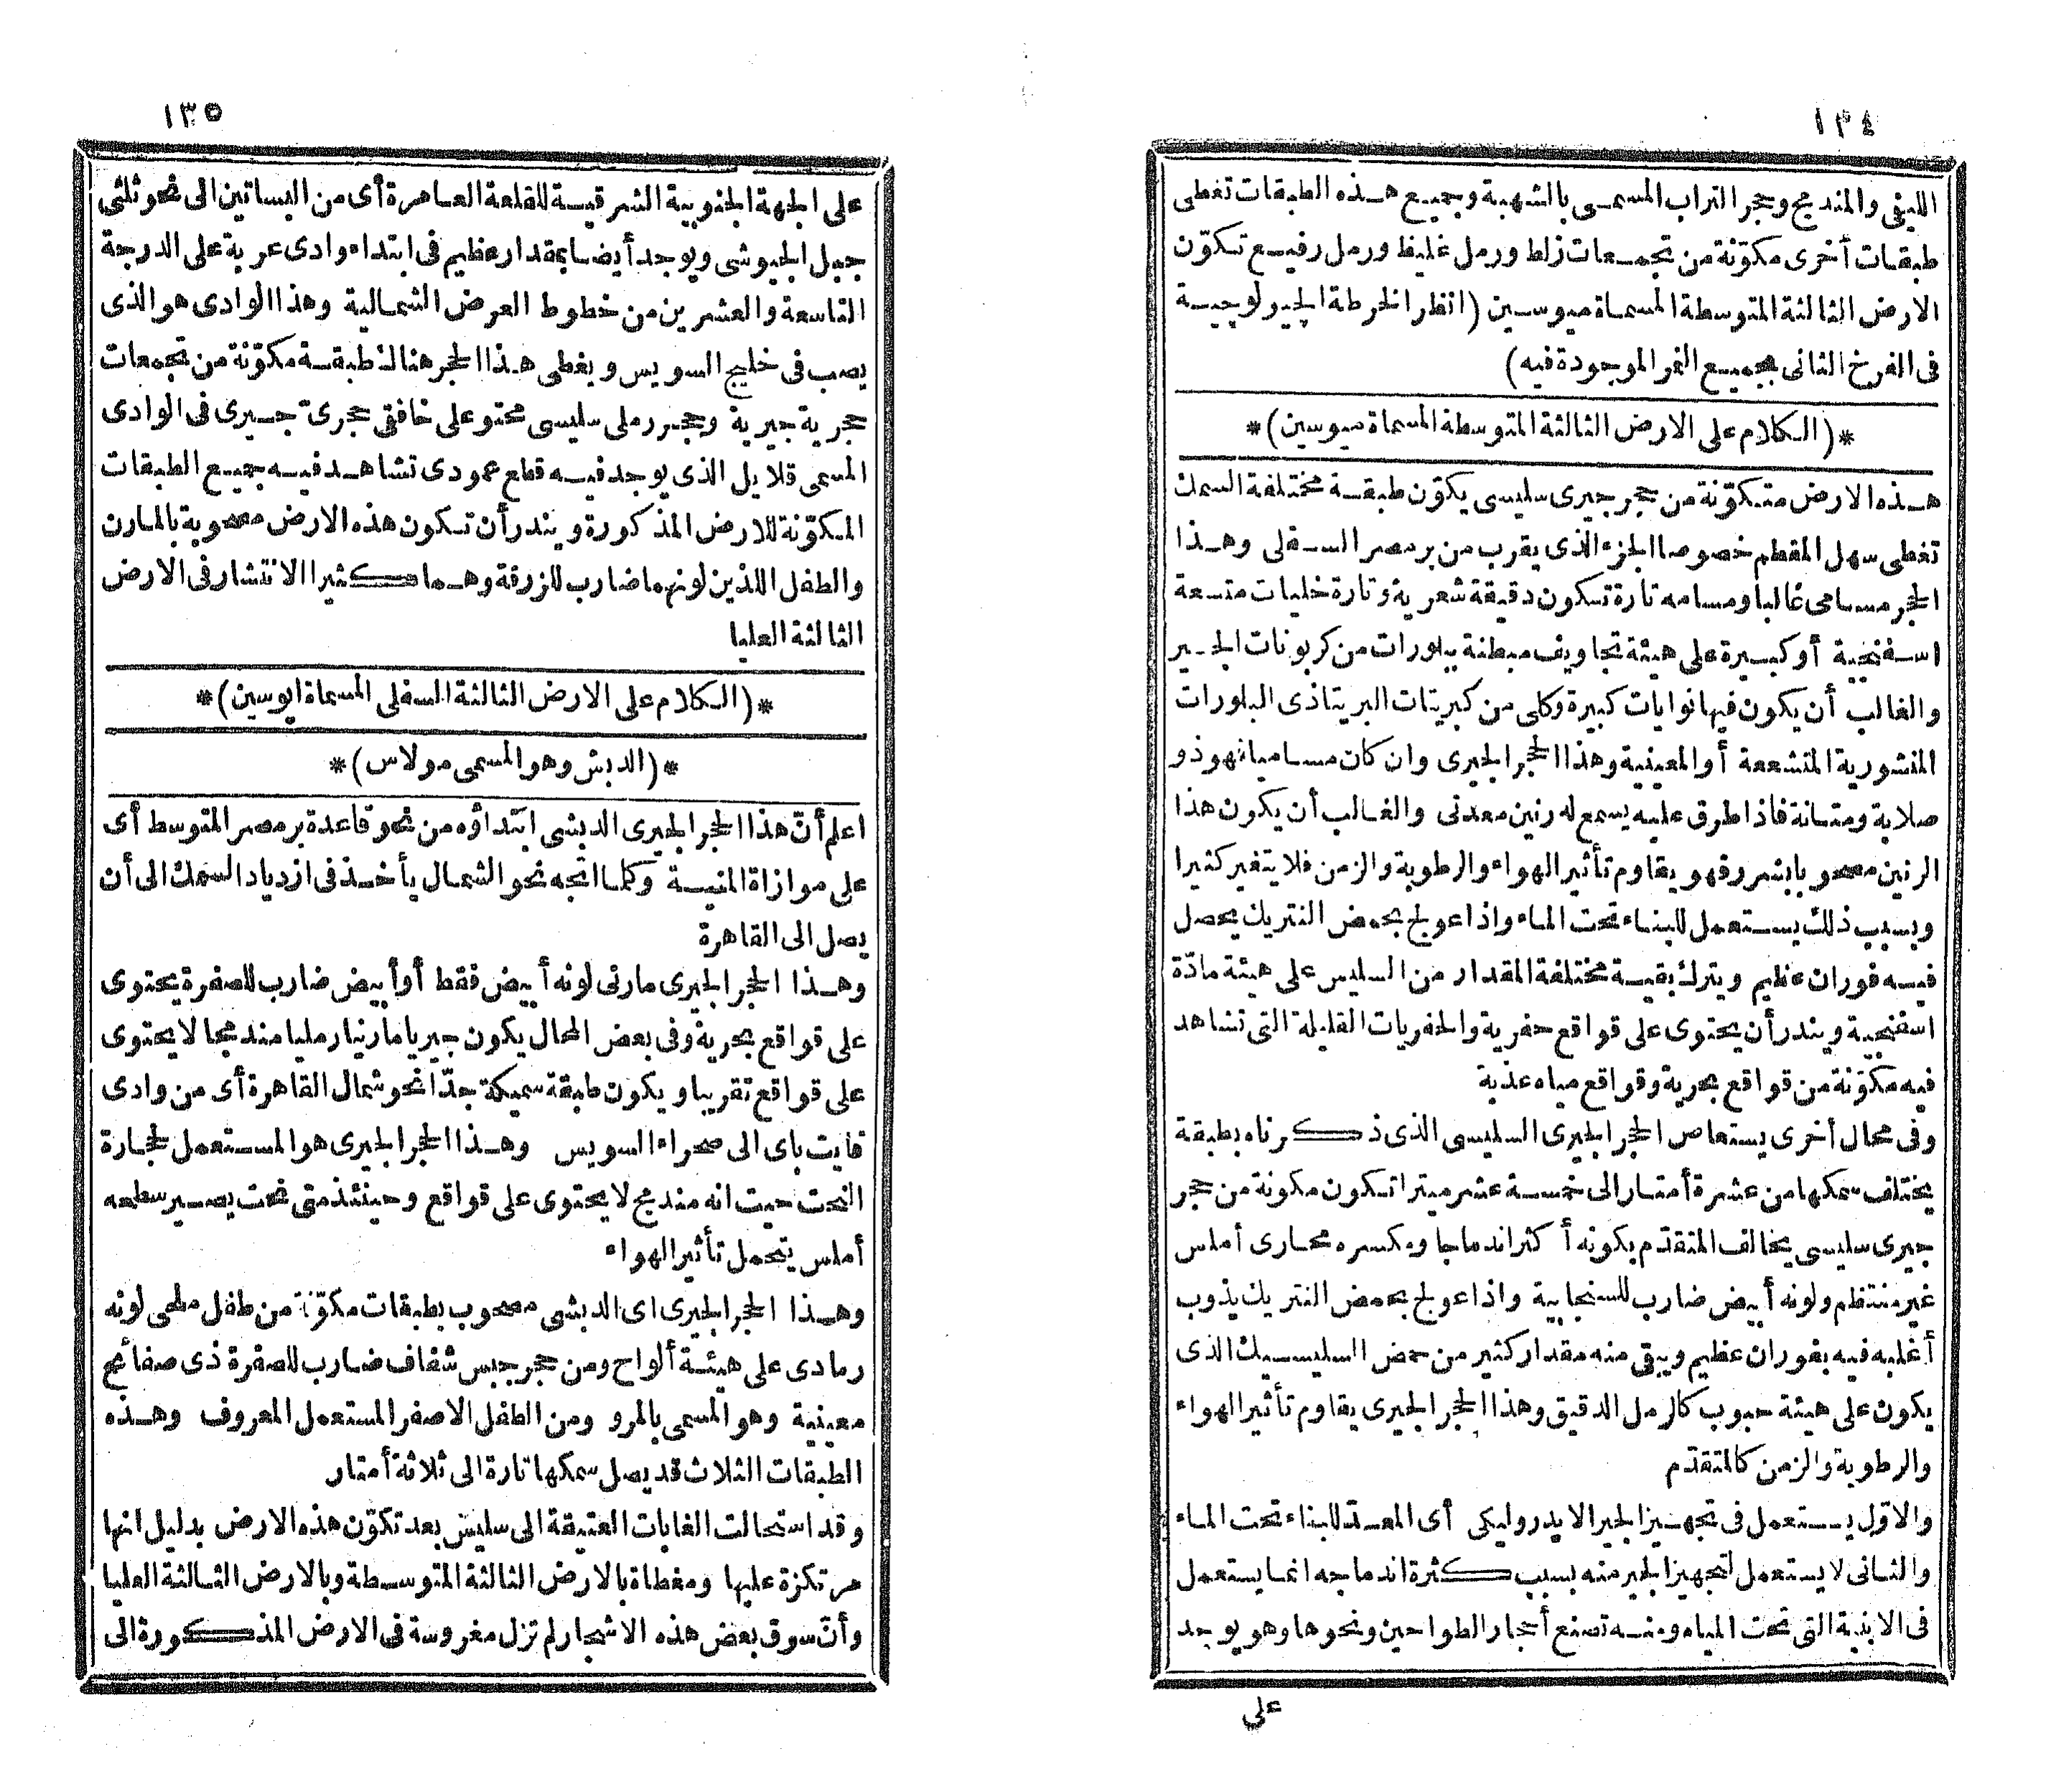 ١٣٤
الليفى والمندمج وحجر التراب المسمى بالشهبة وجميع هذه الطبقات تغطى
طبقات أخرى مكوّنة من تجمعات زلط ورمل غليظ ورمل رفيع تكوّن
الارض الثالثة المتوسطة المسماة ميوسين (انظر الخرطة الجيولوجية
فى الفرخ الثانى بجميع النمر الموجودة فيه)
*(الكلام على الارض الثالثة المتوسطة المسماة ميوسين)*
هذه الارض متكوّنة من حجر جيرى سليسى يكوّن طبقة مختلفة السمك
تغطى سهل المقطم خصوصا الجزء الذى يقرب من بر مصر السفلى وهذا
الحجر مسامى غالبا ومسامه تارة تكون دقيقة شعرية وتارة خليات متسعة
اسفنجية أو كبيرة على هيئة تجاويف مبطنة ببلورات من كربونات الجير
والغالب أن يكون فيها نوايات كبيرة وكلى من كبريتات البريتا ذى البلورات
المنشورية المتشععة أو المعينية وهذا الحجر الجيرى وان كان مساميا فهو ذو
صلابة ومتانة فاذا طرق عليه يسمع له رنين معدنى والغالب أن يكون هذا
الرنين مصحوبا بشرر وفهو يقاوم تأثير الهواء والرطوبة والزمن فلا يتغير كثيرا
وبسبب ذلك يستعمل للبناء تحت الماء واذا عولج بحمض النتريك يحصل
فيه فوران عظيم ويترك بقية مختلفة المقدار من السليس على هيئة مادّة
اسفنجية ويندر أن يحتوى على قواقع حفرية والحفريات القليلة التى تشاهد
فيه مكوّنة من قواقع بحرية وقواقع مياه عذبة
وفى محال أخرى يستعاض الحجر الجيرى السليسى الذى ذكرناه بطبقة
يختلف سمكها من عشرة أمتار الى خمسة عشر ميترا تكون مكونة من حجر
جيرى سليسى يخالف المتقدّم بكونه أكثر اندماجا ومكسره محارى أملس
غير منتظم ولونه أبيض ضارب للسنجابية واذا عولج بحمض النتريك يذوب
أغلبه فيه بفوران عظيم ويبقى منه مقدار كثير من حمض السليسيك الذى
يكون على هيئة حبوب كالرمل الدقيق وهذا الحجر الجيرى يقاوم تأثير الهواء
والرطوبة والزمن كالمتقدّم
والاوّل يستعمل فى تجهيز الجير الايدروليكى أى المعدّ للبناء تحت الماء
والثانى لا يستعمل لتجهيز الجير منه بسبب كثرة اندماجه انما يستعمل
فى الابنية التى تحت المياه ومنه تصنع أحجار الطواحين ونحوها وهو يوجد
على
١٣٥
على الجهة الجنوبية الشرقية للقلعة العامرة أى من البساتين الى نحو ثلثى
جبل الجيوشى ويوجد أيضا بمقدار عظيم فى ابتداء وادى عربة على الدرجة
التاسعة والعشرين من خطوط العرض الشمالية وهذا الوادى هو الذى
يصب فى خليج السويس ويغطى هذا الحجر هنالك طبقة مكوّنة من تجمعات
حجرية جيرية وحجر رملى سليسى محتو على خافقى حجرىّ جيرى فى الوادى
المسمى قلايل الذى يوجد فيه قطع عمودى تشاهد فيه جميع الطبقات
المكوّنة للارض المذكورة ويندر أن تكون هذه الارض مصحوبة بالمارن
والطفل اللذين لونهما ضارب للزرقة وهما كثيرا الانتشار فى الارض
الثالثة العليا
*(الكلام على الارض الثالثة السفلى المسماة ايوسين)*
*(الدبش وهو المسمى مولاس)*
اعلم أنّ هذا الحجر الجيرى الدبشى ابتداؤه من نحو قاعدة بر مصر المتوسط أى
على موازاة المنية وكلما اتجه نحو الشمال يأخذ فى ازدياد السمك الى أن
يصل الى القاهرة
وهذا الحجر الجيرى مارنى لونه أبيض فقط أو أبيض ضارب للصفرة يحتوى
على قواقع بحرية وفى بعض المحال يكون جيريا مارنيا رمليا مندمجا لا يحتوى
على قواقع تقريبا ويكون طبقة سميكة جدّا نحو شمال القاهرة أى من وادى
قايت باى الى صحراء السويس وهذا الحجر الجيرى هو المستعمل لحجارة
النحت حيث انه مندمج لا يحتوى على قواقع وحينئذ متى نحت يصير سطحه
أملس يتحمل تأثير الهواء
وهذا الحجر الجيرى اى الدبشى مصحوب بطبقات مكوّنة من طفل ملحى لونه
رمادى على هيئة ألواح ومن حجر جبس شفاف ضارب للصفرة ذى صفائح
معينية وهو المسمى بالمرو ومن الطفل الاصفر المستعمل المعروف وهذه
الطبقات الثلاث قد يصل سمكها تارة الى ثلاثة أمتار
وقد استحالت الغابات العتيقة الى سليس بعد تكوّن هذه الارض بدليل انها
مرتكزة عليها ومغطاة بالارض الثالثة المتوسطة وبالارض الثالثة العليا
وأنّ سوق بعض هذه الاشجار لم تزل مغروسة فى الارض المذكورة الى